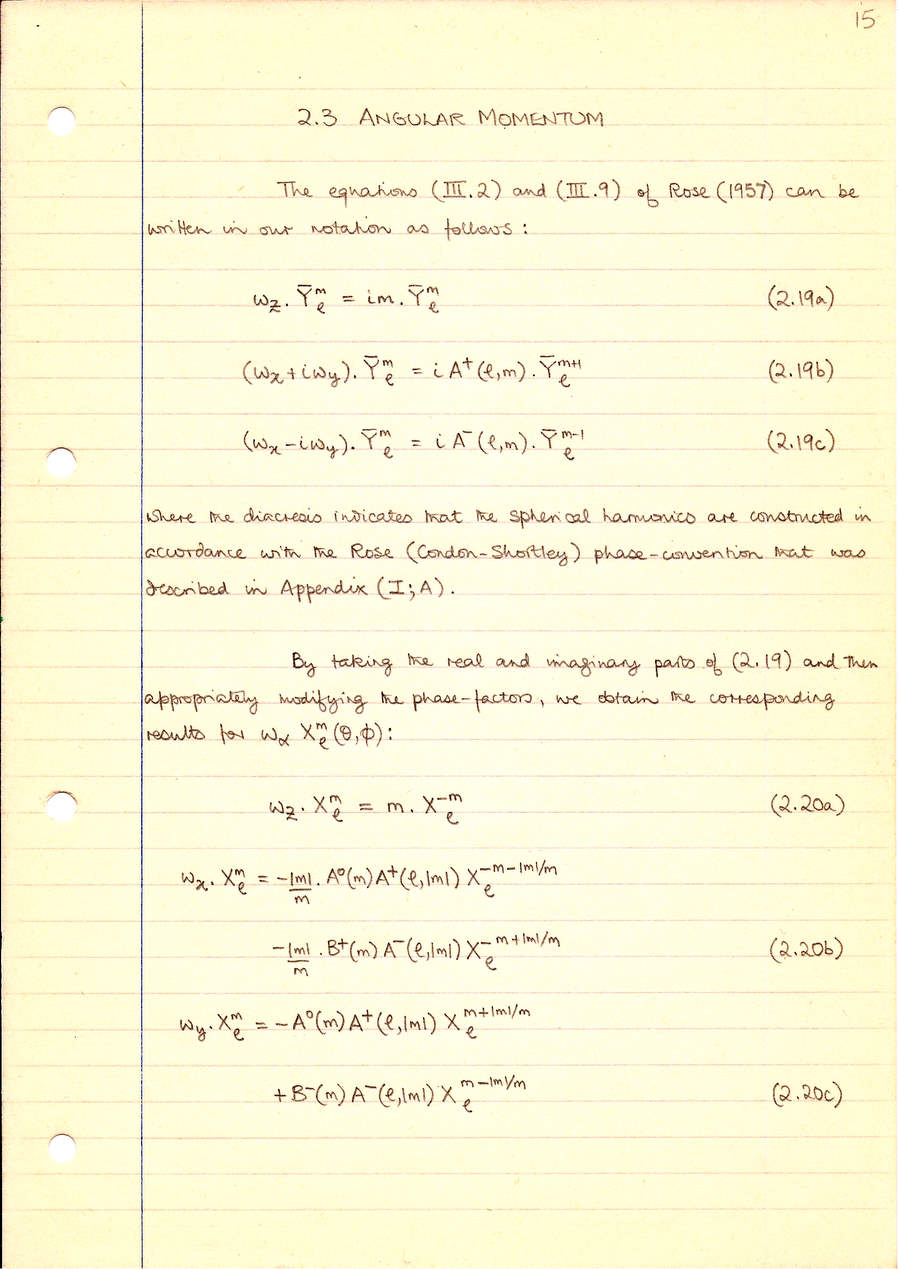 15
2.3 ANGULAR MOMENTUM
The equations (III.2) and (III.9) of Rose (1957) can be
written in our notation as follows :
ω_z . Ȳ_ℓ^m = im . Ȳ_ℓ^m (2.19a)
(ω_x + iω_y) . Ȳ_ℓ^m = i A⁺(ℓ,m) . Ȳ_ℓ^{m+1} (2.19b)
(ω_x - iω_y) . Ȳ_ℓ^m = i A⁻(ℓ,m) . Ȳ_ℓ^{m-1} (2.19c)
where the diacresis indicates that the spherical harmonics are constructed in
accordance with the Rose (Condon-Shortley) phase-convention that was
described in Appendix (I;A).
By taking the real and imaginary parts of (2.19) and then
appropriately modifying the phase-factors, we obtain the corresponding
results for ω_α X_ℓ^m(θ,ϕ):
ω_z . X_ℓ^m = m . X_ℓ^{-m} (2.20a)
ω_x . X_ℓ^m = -|m|/m . A⁰(m) A⁺(ℓ,|m|) X_ℓ^{-m-|m|/m}
-|m|/m . B⁺(m) A⁻(ℓ,|m|) X_ℓ^{-m+|m|/m} (2.20b)
ω_y . X_ℓ^m = -A⁰(m) A⁺(ℓ,|m|) X_ℓ^{m+|m|/m}
+ B⁻(m) A⁻(ℓ,|m|) X_ℓ^{m-|m|/m} (2.20c)